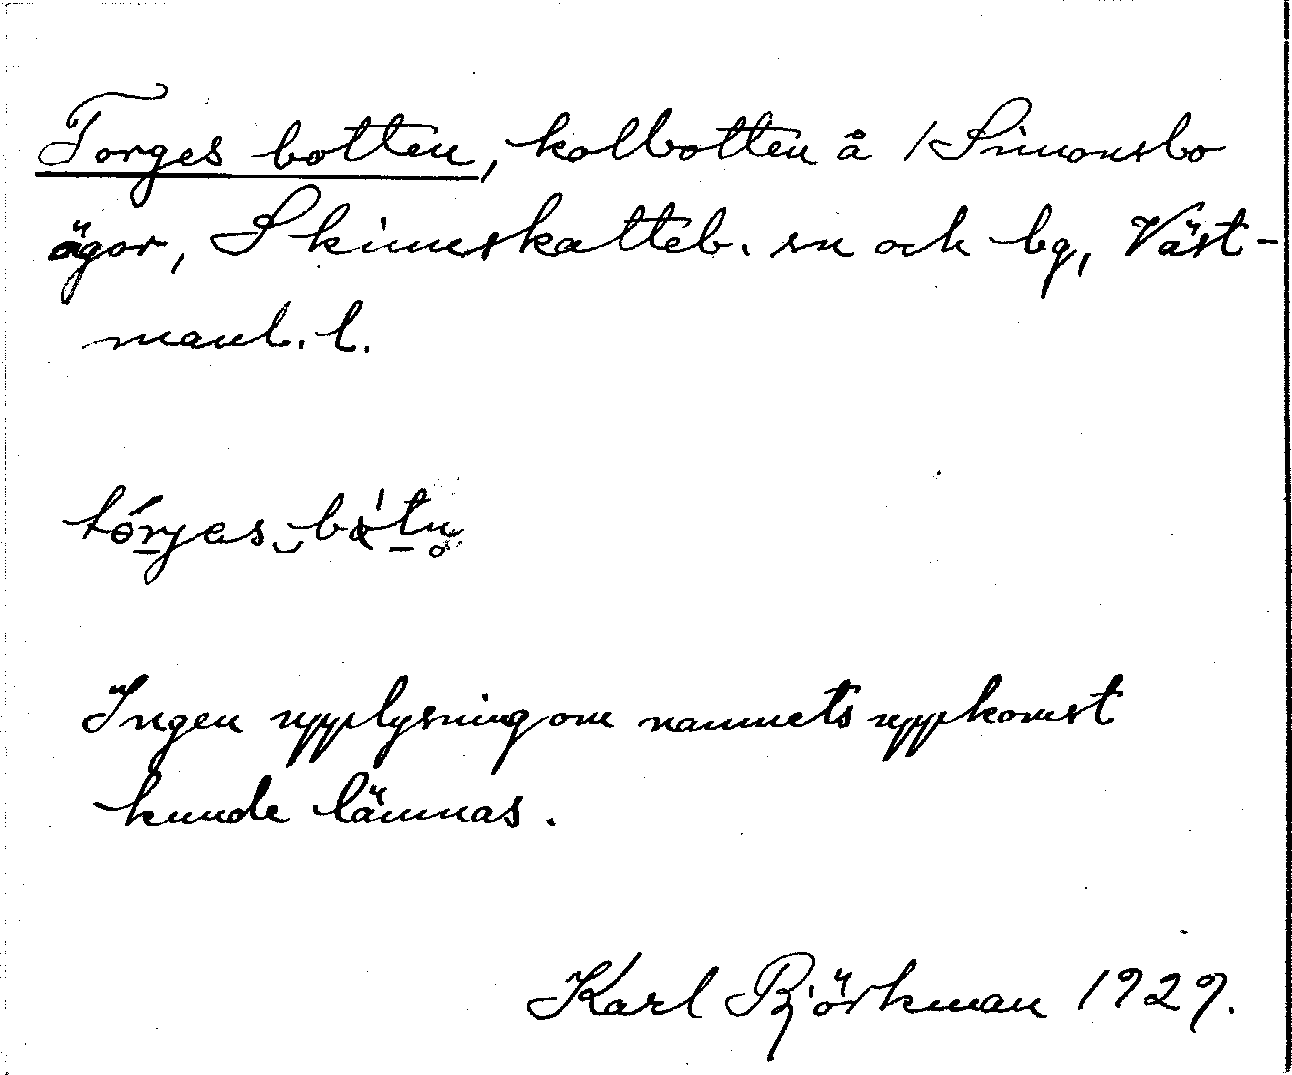 Torges botten, kolbotten å /Simonsbo
ägor, Skinnskatteb. sn och bg, Väst-
manl. l.
Ingen upplysning om namnets uppkomst
kunde lämnas.
Karl Björkman 1929.